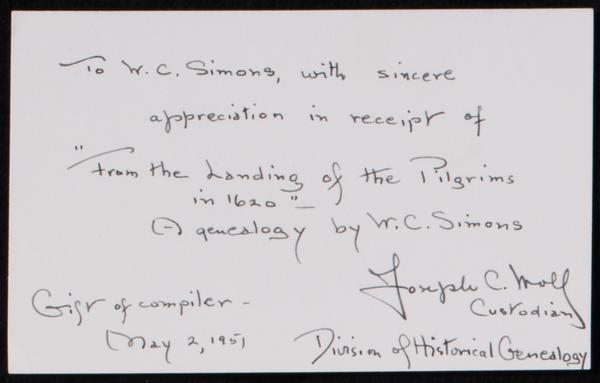 To W. C. Simons, with sincere
appreciation in receipt of
"From the Landing of the Pilgrims
in 1620"—
(-) genealogy by W. C. Simons
Joseph C. Wolf
Custodian
Gift of compiler -
May 2, 1951
Division of Historical Genealogy